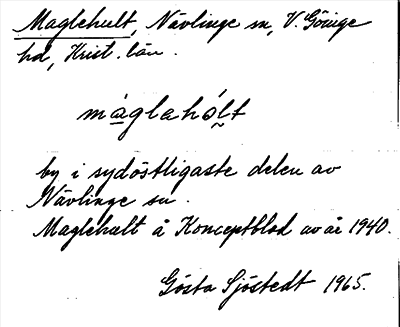 Maglehult, Nävlinge sn, V. Göinge
hd, Krist. län.
máglahó̰lt
by i sydöstligaste delen av
Nävlinge sn.
Maglehult å Konceptblad av år 1940.
Gösta Sjöstedt 1965.